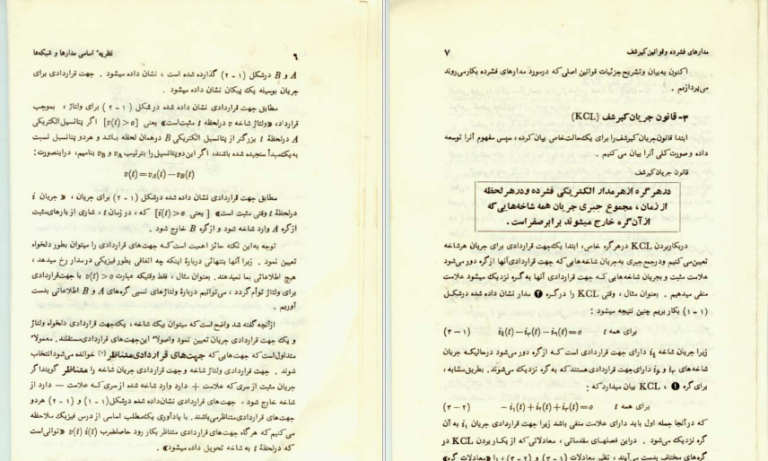 ۶ نظریهٔ اساسی مدارها و شبکه‌ها
A و B درشکل (۱-۲) گذارده شده است، نشان داده میشود. جهت قراردادی برای
جریان بوسیله یک پیکان نشان داده میشود.
مطابق جهت قراردادی نشان داده شده در شکل (۱-۲) برای ولتاژ، بموجب
قرارداد، «ولتاژ شاخه v درلحظه t مثبت‌است» یعنی [v(t)>۰] اگر پتانسیل‌الکتریکی
A درلحظهٔ t بزرگتر از پتانسیل الکتریکی B درهمان لحظه باشد و هردو پتانسیل نسبت
به‌یک‌مبدأ سنجیده شده باشند، اگر این‌دوپتانسیل‌را بترتیب vA و vB بنامیم، دراینصورت:
v(t)=vA(t)−vB(t)
مطابق جهت قراردادی نشان داده شده در شکل (۱-۲) برای جریان، «جریان i
درلحظه t وقتی مثبت است» [یعنی i(t)>۰] که، در زمان t، شاری از بارهای‌مثبت
ازگرهٔ A وارد شاخه شود و ازگره B خارج شود.
توجه به‌این نکته حائز اهمیت است‌که جهت‌های قراردادی را میتوان بطور دلخواه
تعیین نمود. زیرا آنها بتنهائی دربارهٔ اینکه چه اتفاقی بطورفیزیکی درمدار رخ میدهد،
هیچ اطلاعاتی بما نمیدهند. بعنوان مثال، فقط وقتیکه عبارت v(t)>۰ با جهت‌قراردادی
برای ولتاژ توأم گردد، می‌توانیم دربارهٔ ولتاژهای نسبی گره‌های A و B اطلاعاتی بدست
آوریم.
ازآنچه‌گفته شد واضح است‌که میتوان بیک شاخه، یک‌جهت قراردادی دلخواه ولتاژ
و یک جهت قراردادی جریان تعیین نمود واصولاً این‌جهت‌های قراردادی‌مستقلند. معمولاً
متداول‌است‌که جهت‌هایی که جهت‌های قراردادی متناظر (۱) خوانده می‌شود انتخاب
شوند. جهت قراردادی ولتاژ شاخه وجهت قراردادی جریان شاخه را متناظر گویند اگر
جریان مثبت از سری که علامت + دارد وارد شاخه شده ازسری که علامت — دارد از
شاخه خارج شود، جهت‌های قراردادی نشان‌داده شده درشکل(۱-۱) و (۱-۲) هردو
جهت‌های قراردادی‌متناظرمی‌باشند. با یادآوری یک‌مطلب اساسی از درس فیزیک ملاحظه
می‌کنیم که هرگاه جهت‌های قراردادی متناظر بکار رود حاصلضرب v(t) i(t) «توانی‌است
که درلحظهٔ t به شاخه تحویل داده میشود».
مدارهای فشرده و قوانین کیرشف ۷
اکنون به‌بیان وتشریح جزئیات قوانین اصلی که درمورد مدارهای فشرده بکارمی‌روند
می‌پردازیم.
۳- قانون جریان کیرشف (KCL)
ابتدا قانون‌جریان کیرشف‌را برای یک‌حالت‌خاص بیان‌کرده، سپس مفهوم آنرا توسعه
داده وصورت‌کلی آنرا بیان می‌کنیم.
قانون جریان‌کیرشف
درهرگره ازهرمدار الکتریکی فشرده ودرهرلحظه
از زمان، مجموع جبری جریان همه شاخه‌هایی که
ازآن‌گره خارج میشوند برابرصفراست.
دربکاربردن KCL درهرگره خاص، ابتدا یک‌جهت قراردادی برای جریان هرشاخه
تعیین‌می‌کنیم ودرجمع‌جبری به‌جریان شاخه‌هایی که جهت‌قراردادی‌آنها ازگره دور می‌شود
علامت مثبت وبجریان شاخه‌هایی که جهت قراردادی آنها به‌گره نزدیک میشود علامت
منفی میدهیم. بعنوان مثال، وقتی KCL را درگره ❶ مدار نشان داده شده درشکل
(۱-۱) بکار بریم چنین نتیجه میشود:
(۳-۱) i₄(t)−iᵣ(t)−iᵧ(t)=۰ برای همه t
زیرا جریان شاخه i₄ دارای جهت قراردادی است که ازگره دور می‌شود درحالیکه جریان
شاخه‌های iᵣ و iᵧ دارای‌جهت قراردادی‌هستند که به گره نزدیک می‌شوند. بطریق‌مشابه،
برای‌گره ❶، KCL بیان میدارد که:
(۳-۲) −i₁(t)+iᵧ(t)+iᵣ(t)=۰ برای همه t
که درآنجا جمله اول باید دارای علامت منفی باشد زیرا جهت قراردادی جریان i₁ به آن
گره نزدیک می‌شود. دراین فصلهای مقدماتی، معادلاتی که از بکار بردن KCL در
گره‌های مختلف بدست می‌آیند، نظیر معادلات (۳-۱) و (۳-۲)، را «معادلات گره»